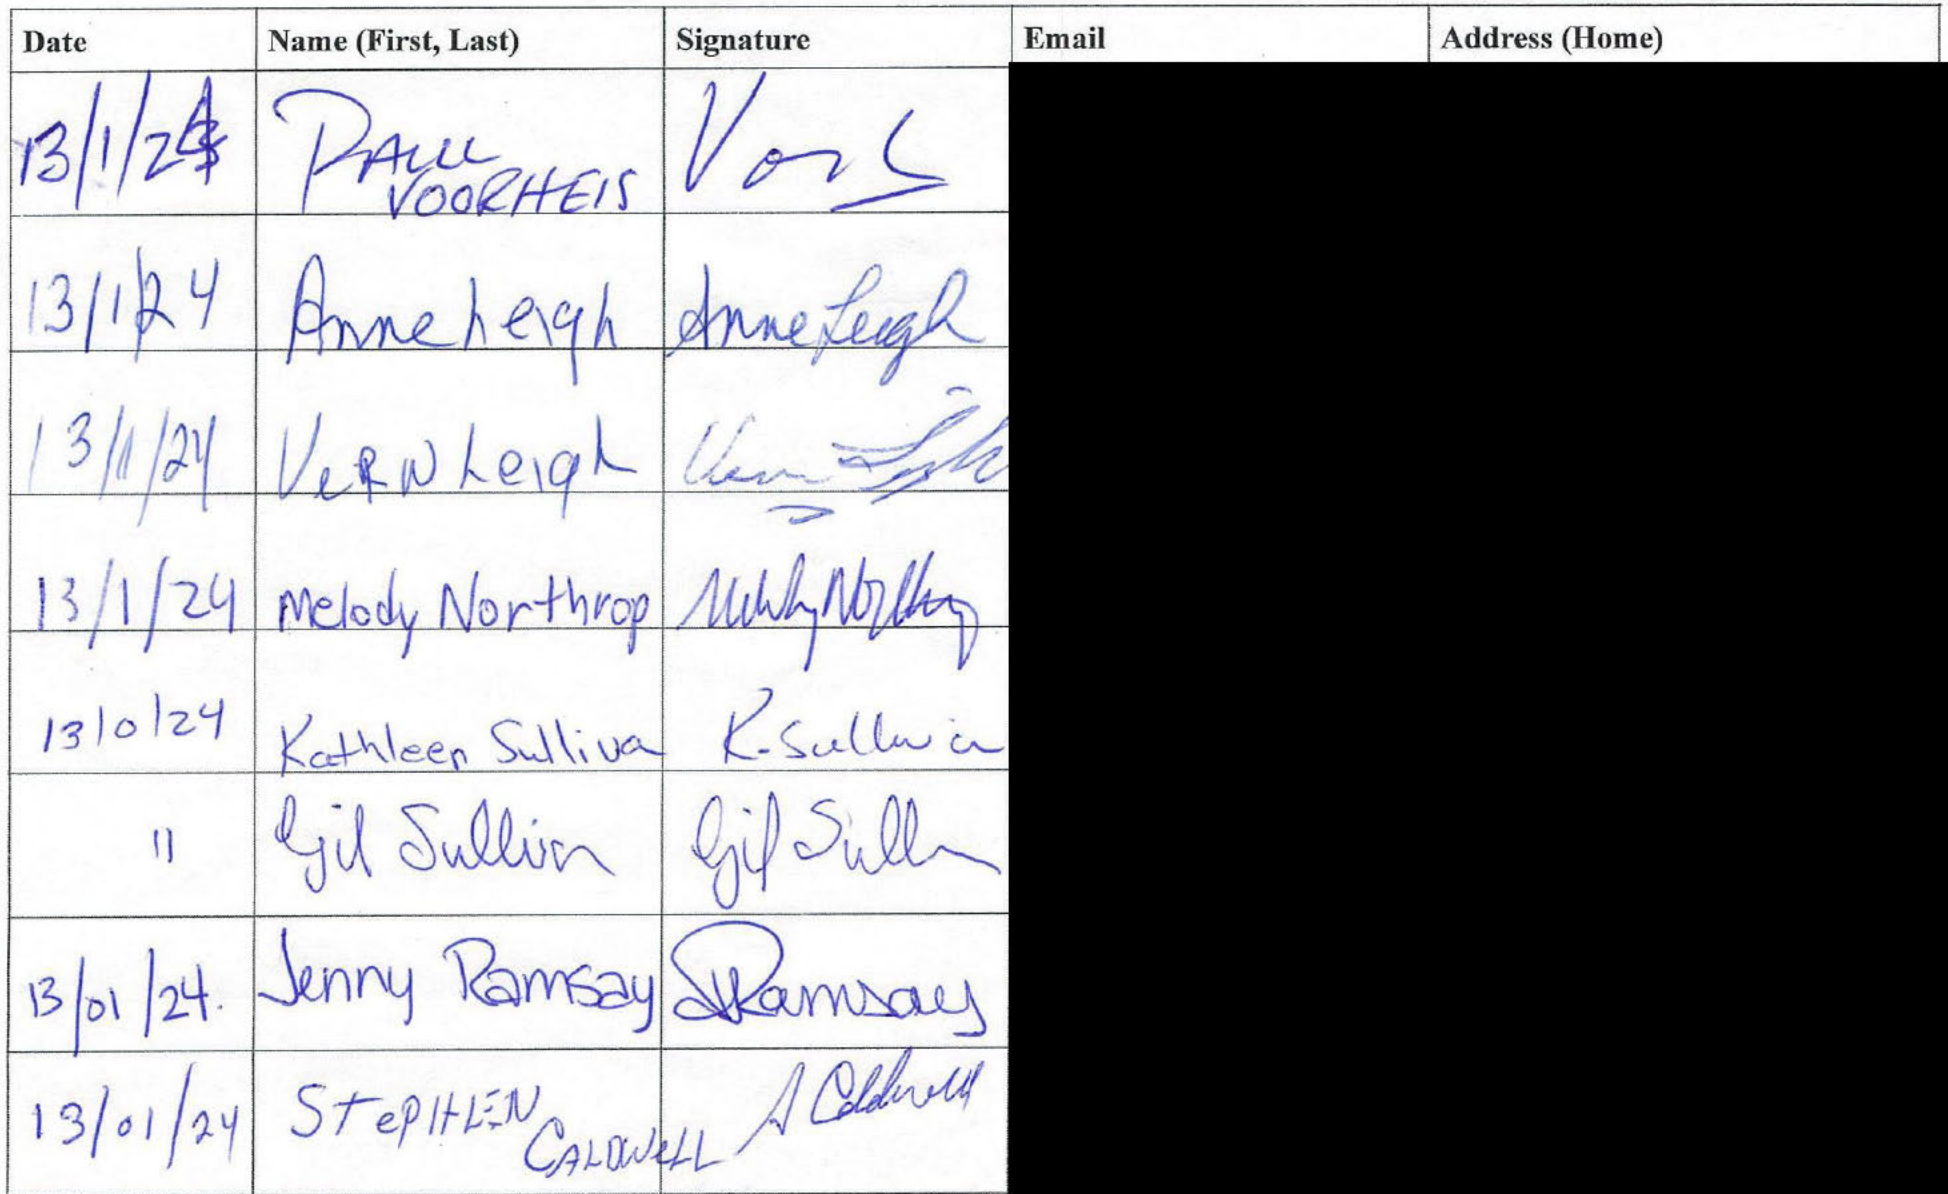 Date Name (First, Last) Signature Email Address (Home)
13/1/24 PAUL
VOORHEIS
13/1/24 Anne Leigh Anne Leigh
13/1/24 VERN Leigh
13/1/24 Melody Northrop
13/0/24 Kathleen Sulliva K. Sullivan
" Gil Sullivan Gil Sull
13/01/24. Jenny Ramsay JRamsay
13/01/24 STePHEN
CALDWeLL S Caldwell